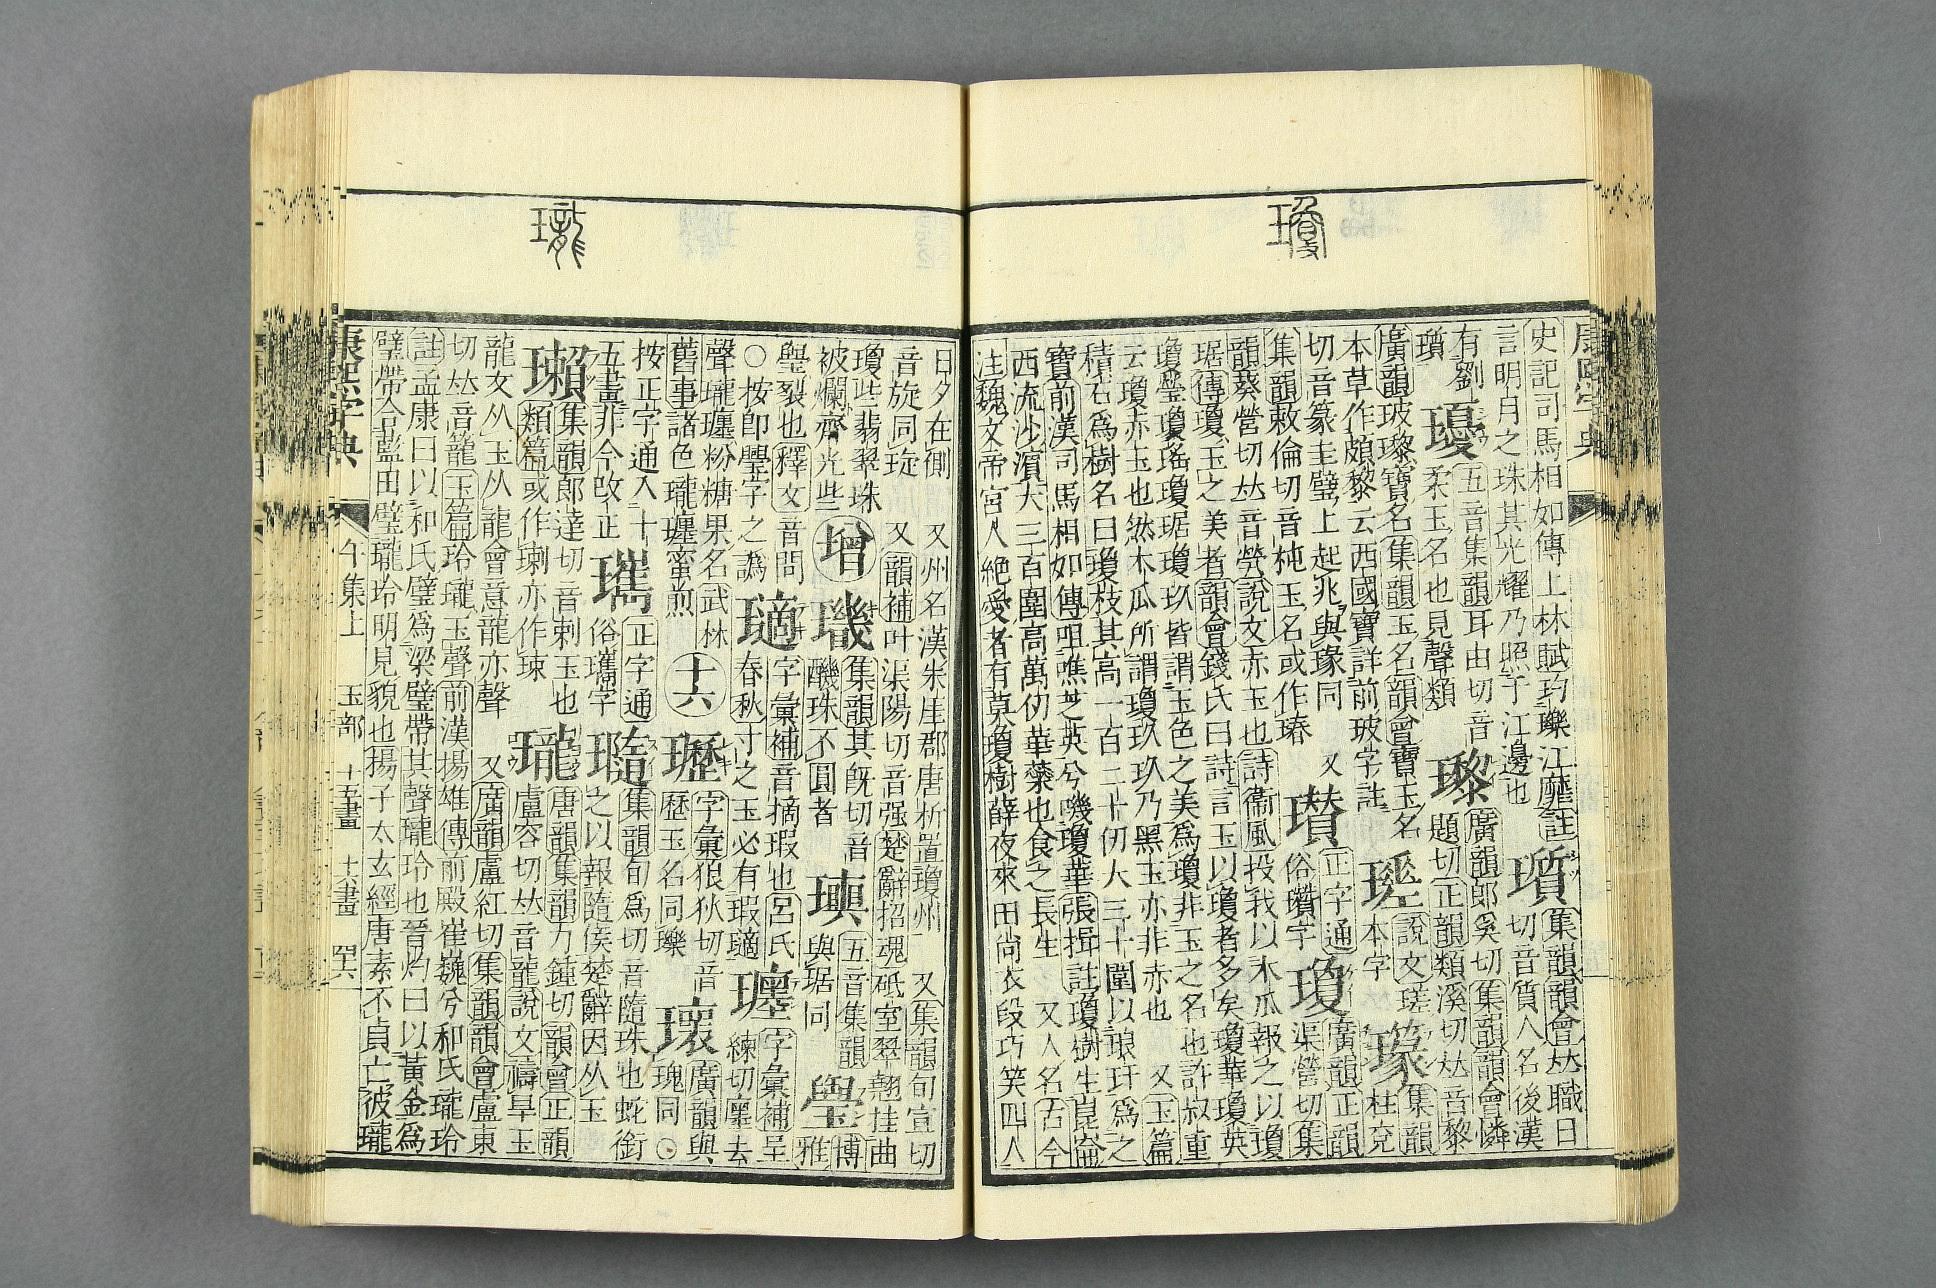 康熙字典
史記司馬相如傳上林賦玓瓅江靡註
言明月之珠其光耀乃照于江邊也
瓆
集韻韻會𠀤職日
切音質人名後漢
有劉
瓆
瓇
五音集韻耳由切音
柔玉名也見聲類
瓈
廣韻郎奚切集韻韻會憐
題切正韻類溪切𠀤音黎
廣韻玻瓈寶名集韻玉名韻會寶玉名
本草作頗黎云西國寶詳前玻字註
說文瑳
本字
集韻
柱兗
切音篆圭璧上起兆與瑑同 又
集韻敕倫切音杶玉名或作瑃
瓉
正字通
俗瓚字
瓊
廣韻正韻
渠營切集
韻葵營切𠀤音煢說文赤玉也詩衞風投我以木瓜報之以瓊
琚傳瓊玉之美者韻會錢氏曰詩言玉以瓊者多矣瓊華瓊英
瓊瑩瓊瑤瓊琚瓊玖皆謂玉色之美爲瓊非玉之名也許叔重
云瓊赤玉也然木瓜所謂瓊玖玖乃黑玉亦非赤也 又玉篇
積石爲樹名曰瓊枝其高一百二十仞大三十圍以琅玕爲之
寶前漢司馬相如傳咀噍芝英兮嘰瓊華張揖註瓊樹生崑崙
西流沙濱大三百圍高萬仞華蘂也食之長生 又人名古今
注魏文帝宮人絕愛者有莫瓊樹薛夜來田尚衣段巧笑四人
日夕在側 又州名漢朱崖郡唐析置瓊州 又集韻旬宣切
音旋同琁 又韻補叶渠陽切音强楚辭招魂砥室翠翹挂曲
瓊些翡翠珠
被爛齊光些
增
璣
集韻其旣切音
珠不圓者
五音集韻
與琚同
璺
博
雅
璺裂也釋文音問
○按卽璺字之譌
瓋
字彙補音摘瑕也呂氏
春秋寸之玉必有瑕瓋
字彙補呈
練切廛去
聲瓏粉糖果名武林
舊事諸色瓏蜜煎
十六
瓑
字彙狼狄切音
歷玉名同瓅
瓌
廣韻與
瑰同○
按正字通入十
五畫非今改正
正字通
俗瓗字
集韻旬爲切音隨珠也蛇銜
之以報隨侯楚辭因从玉
瓎
集韻郎達切音剌玉也
類篇或作瑓亦作
瓏
唐韻集韻力鍾切韻會正韻
盧容切𠀤音龍說文禱旱玉
龍文从玉从龍會意龍亦聲 又廣韻盧紅切集韻韻會盧東
切𠀤音籠玉篇玲瓏玉聲前漢揚雄傳前殿崔巍兮和氏瓏玲
註孟康曰以和氏璧爲梁璧帶其聲瓏玲也晉灼曰以黃金爲
璧帶含藍田璧瓏玲明見貌也揚子太玄經唐素不貞亡彼瓏
康熙字典
午集上 玉部 十五畫 十六畫 罕六